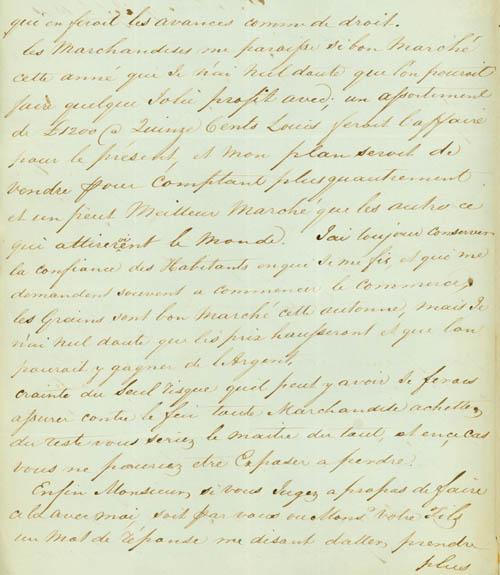 qui en feroit les avances comme de droit.
les Marchandises me paraisse si bon Marché
cette anné que Je n'ai nul doute que l'on pouroit
faire quelque Jolie profit avec. un assortement
de £1200 @ Quinze Cents Louis feroit l'affaire
pour le présent, et mon plan seroit de
vendre pour comptant plusquautrement
et un peut Meilleur Marché que les autre ce
qui attireroient le Monde. J'ai toujour conserver
la confiance des Habitants en qui Je me fie, et que me
demandent souvent a commencer le commerce,
les Grains sont bon Marché cette automne, mais Je
n'ai nul doute que les prix hausseront et que l'on
pouroit y gagner de l'Argent,
crainte du Seul risque quel peut y avoir Je ferais
assurer contre le feu toute Marchandise achettez
du reste vous seriez le maitre du tout, et en ça cas
vous ne pouriez etre Exposer a perdre.
Enfin Monsieur, si vous Jugez apropos de faire
a la avec moi, soit par vous ou Monsr Votre Fils
un Mot de réponse me disant d'aller prendre
plus